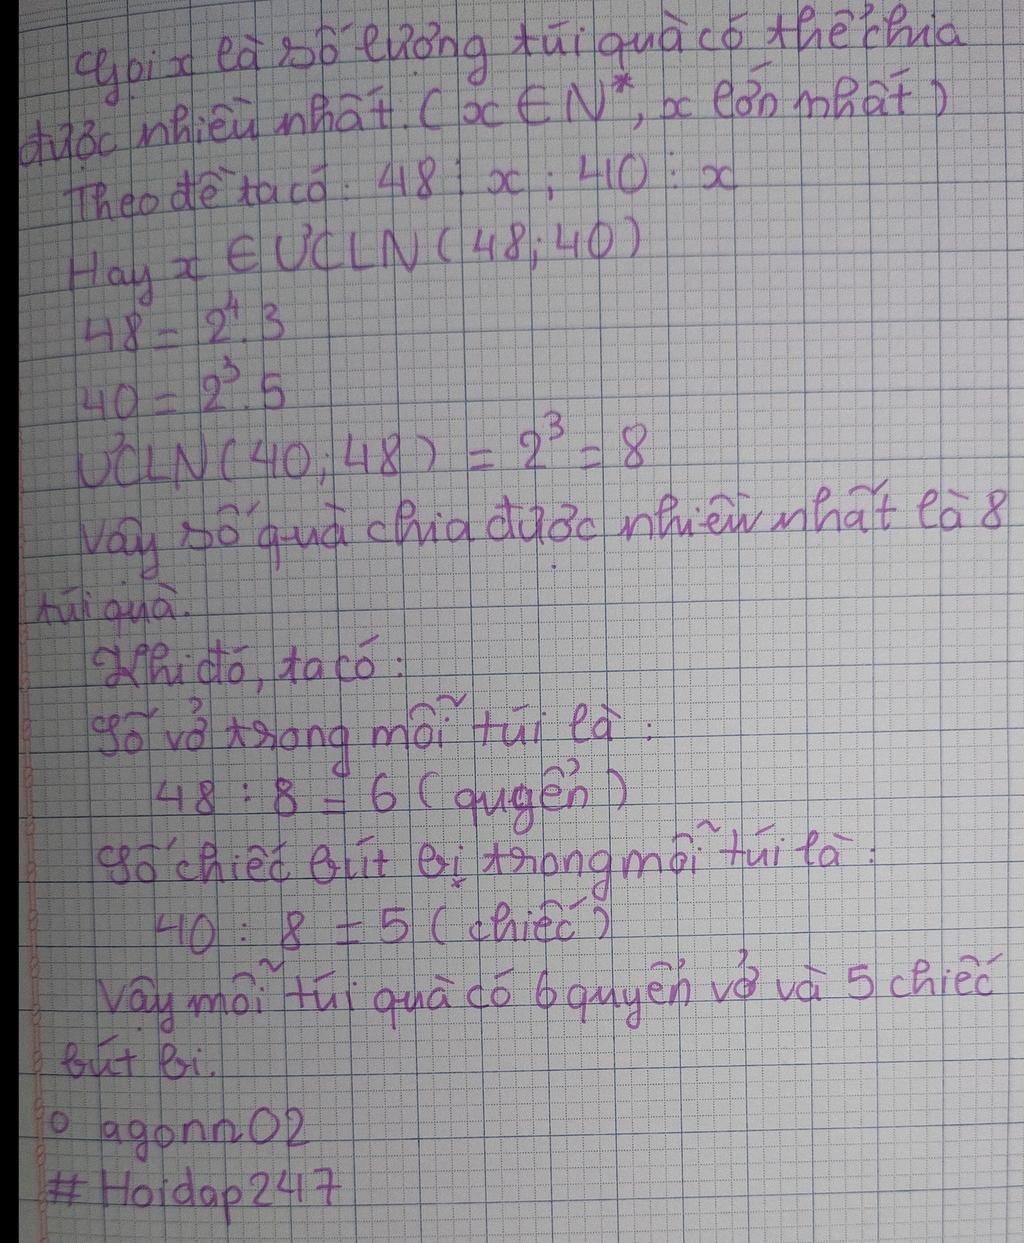 Gọi x là số lượng túi quà có thể chia
được nhiều nhất. ( x ∈ N*, x lớn nhất )
Theo đề ta có: 48 ⋮ x ; 40 ⋮ x
Hay x ∈ ƯCLN ( 48; 40 )
48 = 2⁴. 3
40 = 2³. 5
ƯCLN ( 40; 48 ) = 2³ = 8
Vậy số quà chia được nhiều nhất là 8
túi quà.
Khi đó, ta có:
Số vở trong mỗi túi là :
48 : 8 = 6 ( quyển )
Số chiếc bút bi trong mỗi túi là :
40 : 8 = 5 ( chiếc )
Vậy mỗi túi quà có 6 quyển vở và 5 chiếc
bút bi.
o agonn02
# Hoidap247